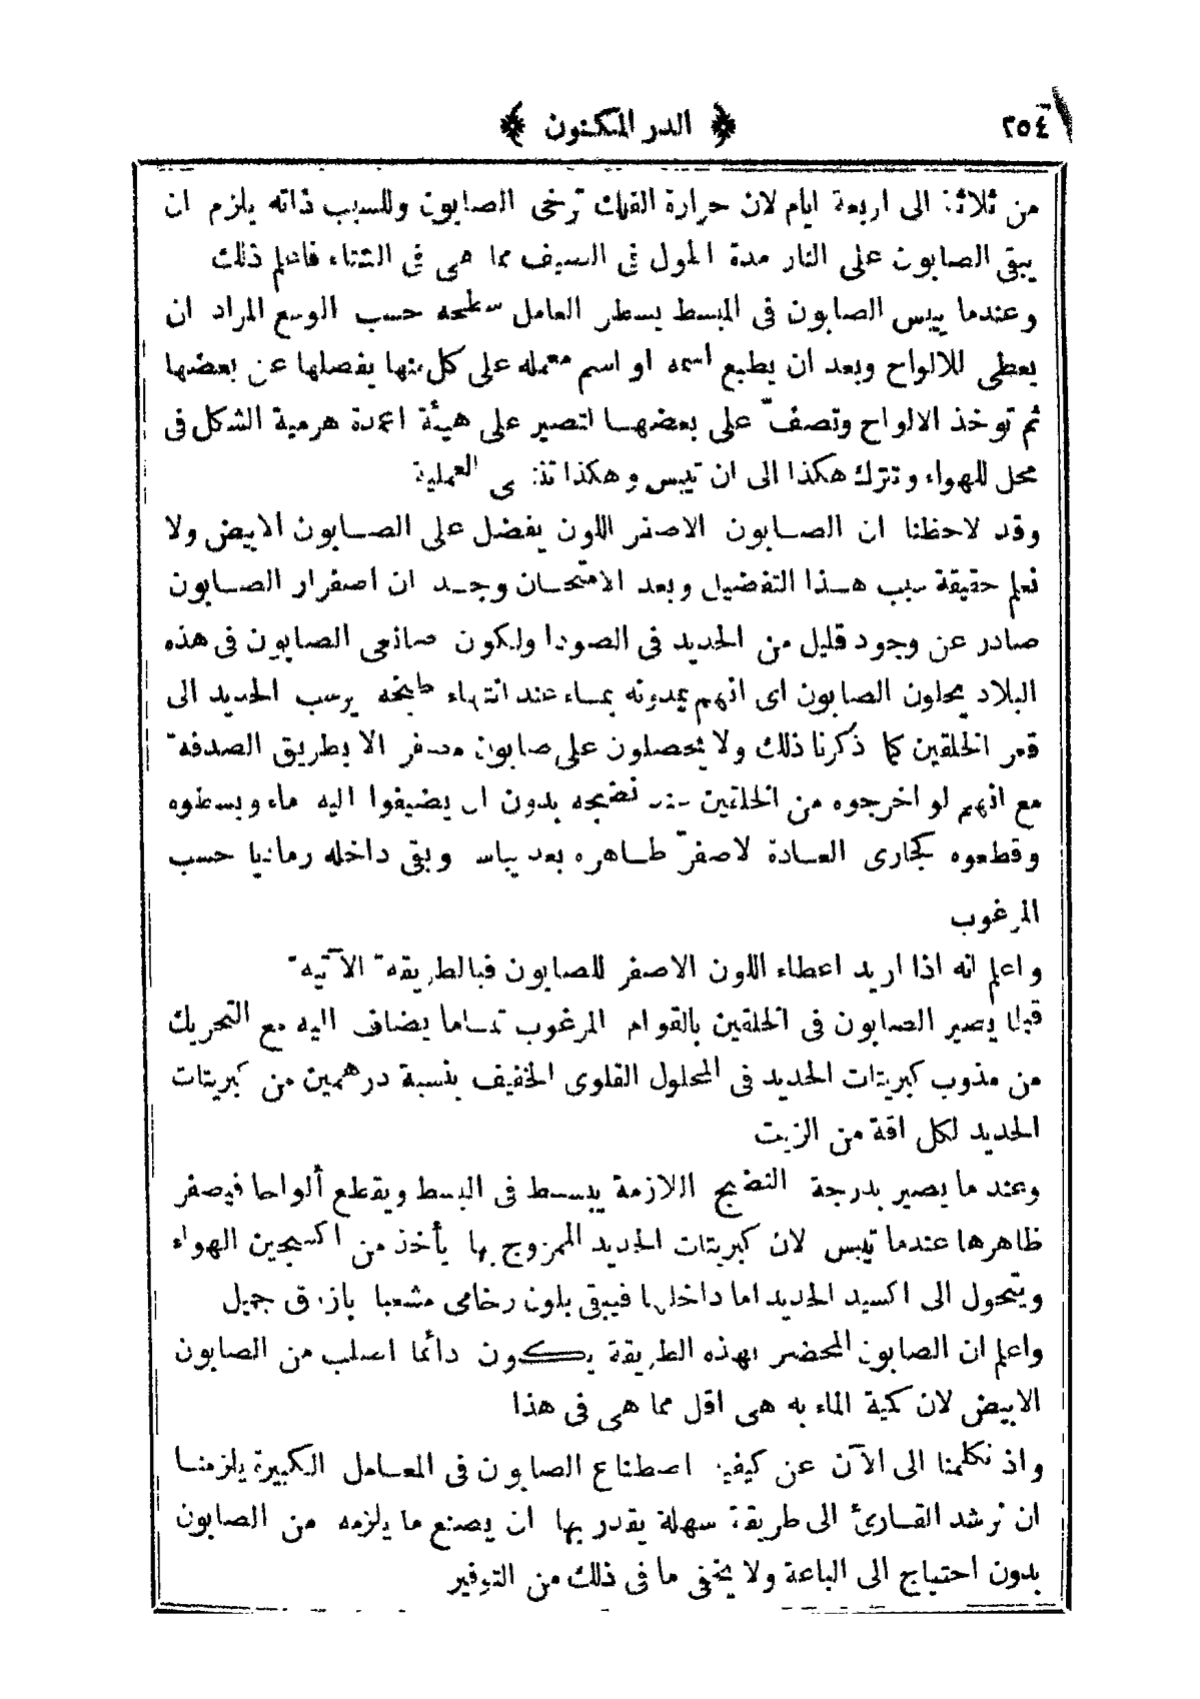 ٢٥٤
﴿ الدر المكنون ﴾
من ثلاثة الى اربعة ايام لان حرارة القيظ ترخى الصابون وللسبب ذاته يلزم ان
يبقى الصابون على النار مدة اطول فى الصيف مما هى فى الشتاء فاعلم ذلك
وعندما ييبس الصابون فى المبسط يسطر العامل سطحه حسب الوسع المراد ان
يعطى للالواح وبعد ان يطبع اسمه او اسم معمله على كل منها يفصلها عن بعضها
ثم توخذ الالواح وتصفّ على بعضها لتصير على هيئة اعمدة هرمية الشكل فى
محل للهواء وتترك هكذا الى ان تيبس وهكذا تنتهى العملية
وقد لاحظنا ان الصابون الاصفر اللون يفضل على الصابون الابيض ولا
نعلم حقيقة سبب هذا التفضيل وبعد الامتحان وجد ان اصفرار الصابون
صادر عن وجود قليل من الحديد فى الصودا ولكون صانعى الصابون فى هذه
البلاد يحلون الصابون اى انهم يمدونه بماء عند انتهاء طبخه يرسب الحديد الى
قعر الخلقين كما ذكرنا ذلك ولا يتحصلون على صابون مصفر الا بطريق الصدفة
مع انهم لو اخرجوه من الخلقين عند نضجه بدون ان يضيفوا اليه ماء وبسطوه
وقطعوه كجارى العادة لاصفرّ ظاهره بعد يباسه وبقى داخله رماديا حسب
المرغوب
واعلم انه اذا اريد اعطاء اللون الاصفر للصابون فبالطريقة الآتية
قبلما يصير الصابون فى الخلقين بالقوام المرغوب تماما يضاف اليه مع التحريك
من مذوب كبريتات الحديد فى المحلول القلوى الخفيف بنسبة درهمين من كبريتات
الحديد لكل اقة من الزيت
وعند ما يصير بدرجة النضج اللازمة يبسط فى المبسط ويقطع ألواحا فيصفر
ظاهرها عندما تيبس لان كبريتات الحديد الممزوج بها يأخذ من اكسيجين الهواء
ويتحول الى اكسيد الحديد اما داخلها فيبقى بلون رخامى مشعبا بازرق جميل
واعلم ان الصابون المحضر بهذه الطريقة يكون دائما اصلب من الصابون
الابيض لان كمية الماء به هى اقل مما هى فى هذا
واذ تكلمنا الى الآن عن كيفية اصطناع الصابون فى المعامل الكبيرة يلزمنا
ان نرشد القارئ الى طريقة سهلة يقدر بها ان يصنع ما يلزمه من الصابون
بدون احتياج الى الباعة ولا يخفى ما فى ذلك من التوفير